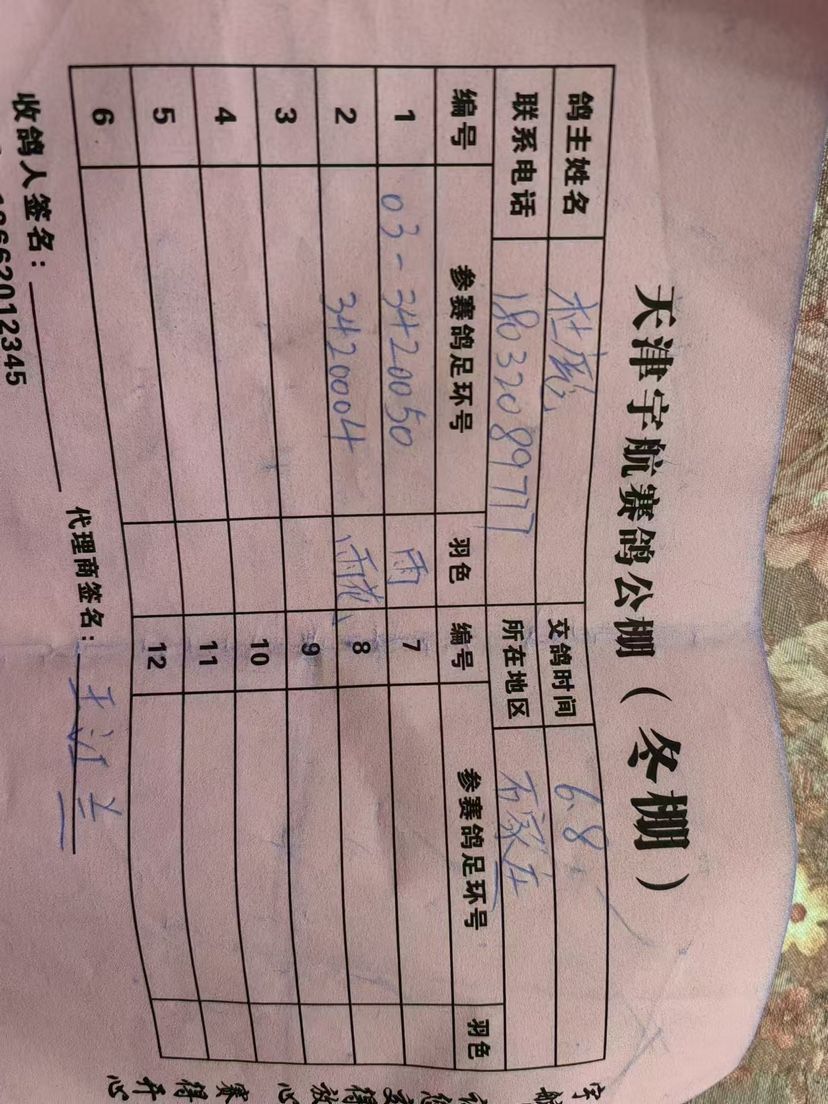 天津宇航赛鸽公棚（冬棚）
鸽主姓名 杜 交鸽时间 6.8
联系电话 18032089777 所在地区 石家庄
编号 参赛鸽足环号 羽色 编号 参赛鸽足环号 羽色
1 03-3420050 雨 7
2 3420004 雨花 8
3 9
4 10
5 11
6 12
收鸽人签名： 代理商签名： 王江兰
2012345